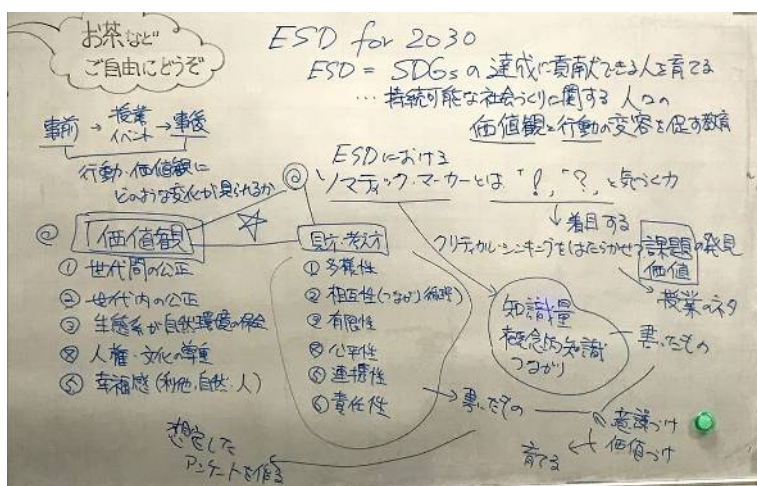 お茶など
ご自由にどうぞ
ESD for 2030
ESD = SDGsの達成に貢献できる人を育てる
… 持続可能な社会づくりに関する 人々の
価値観と行動の変容を促す教育
事前 → 授業 イベント → 事後
行動・価値観に
どのような変化が見られるか
ESDにおける
@ ソマティック・マーカーとは "！, "？, と気づく力
↓ 着目する
クリティカルシンキングをはたらかせて課題の発見
価値
→ 授業のネタ
@ 価値観
① 世代間の公正
② 世代内の公正
③ 生態系が自然環境の保全
④ 人権・文化の尊重
⑤ 幸福感 (利他・自然・人)
見方・考え方
① 多様性
② 相互性(つながり 循環)
③ 有限性
④ 公平性
⑤ 連携性
⑥ 責任性
知識量
概念的知識
つながり
書いたもの
→ 書いたもの
意識づけ
価値づけ
育てる
想定した
アンケートを作る